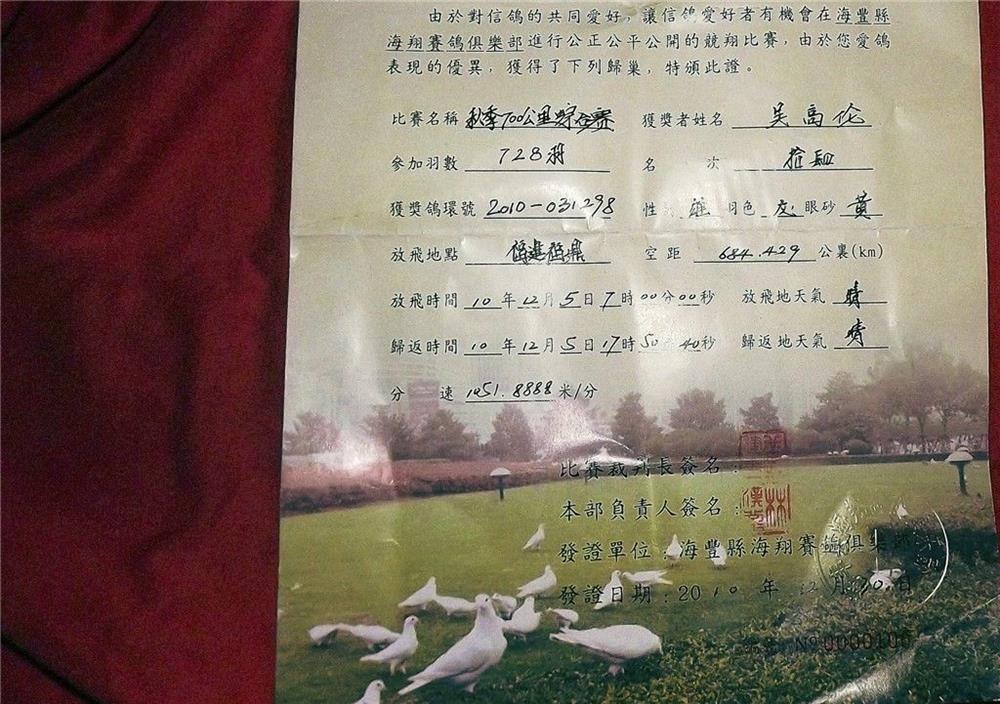 由於對信鴿的共同愛好，讓信鴿愛好者有機會在海豐縣
海翔賽鴿俱樂部進行公正公平公開的競翔比賽，由於您愛鴿
表現的優異，獲得了下列歸巢，特頒此證。
比賽名稱 秋季700公里综合赛 獲獎者姓名 吴高伦
參加羽數 728羽 名 次 拾
獲獎鴿環號 2010-031298 性 雄 羽色 灰 眼砂 黄
放飛地點 福建福鼎 空距 684.429 公裏(km)
放飛時間 10 年 12 月 5 日 7 時 00 分 00 秒 放飛地天氣 晴
歸返時間 10 年 12 月 5 日 17 時 50 分 40 秒 歸返地天氣 晴
分 速 1051.8888 米/分
比賽裁判長簽名：
本部負責人簽名：
發證單位：海豐縣海翔賽鴿俱樂部
發證日期：2010 年 12 月 30 日
№ 000010